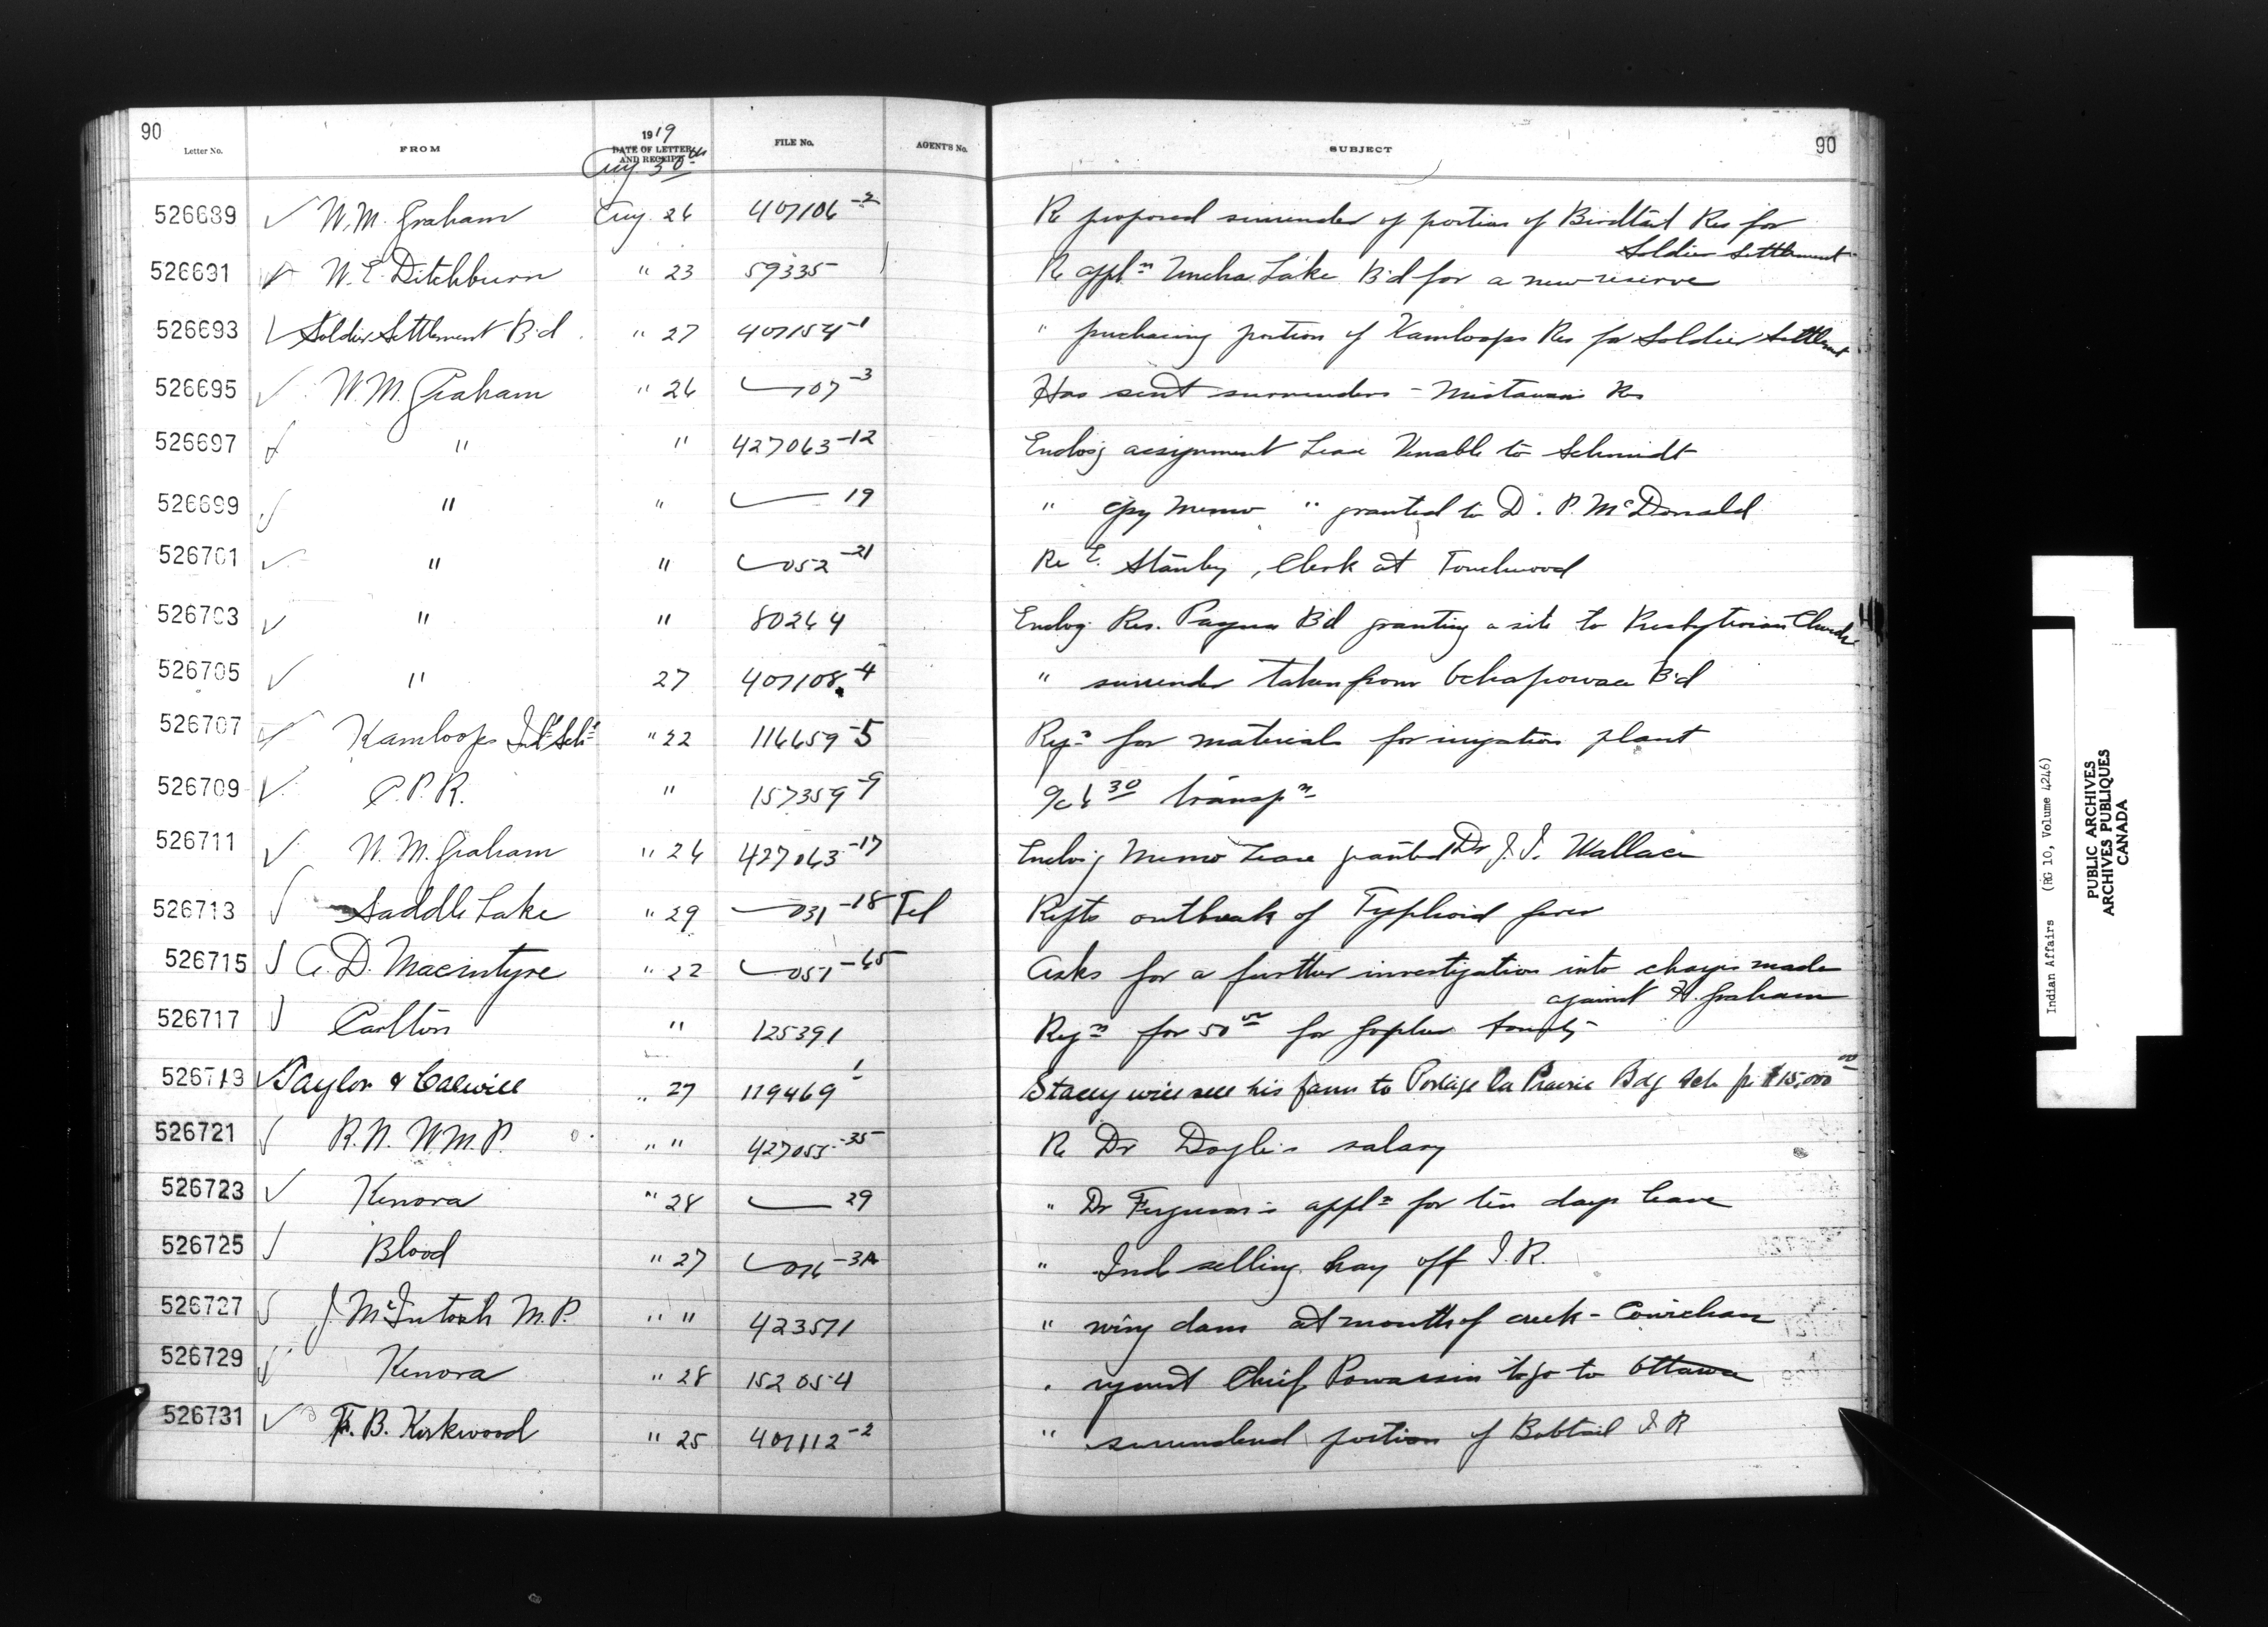 90
Letter No. FROM 1919 DATE OF LETTER AND RECEIPT FILE No. AGENT'S No. SUBJECT 90
Aug 30th
526689 ✓ W. M. Graham Aug. 26 407106-2 Re proposed surrender of portion of Birdtail Res for
Soldier Settlement
526691 W. E. Ditchburn " 23 59335 Re appln Uncha Lake Bd for a new reserve
526693 ✓ Soldier Settlement Bd. " 27 407154-1 " purchasing portion of Kamloops Res for Soldier Settlmt
526695 ✓ W. M. Graham " 26 107-3 Has sent surrenders - Mistawasis Res
526697 ✓ " " 427063-12 Enclosg assignment Lease Venable to Schmidt
526699 ✓ " " 19 " cpy Memo " granted to D. P. McDonald
526701 ✓ " " 052-21 Re E. Stanley, Clerk at Touchwood
526703 ✓ " " 80264 Enclog. Res. Bd granting a site to Presbyterian Church
526705 ✓ " 27 407108-4 " surrender taken from Ochapowace Bd
526707 ✓ Kamloops Indl Schl " 22 116659-5 Reqn for materials for irrigation plant
526709 ✓ C.P.R. " 157359-9 a/c 6 30 transpn
526711 ✓ W. M. Graham " 26 427063-17 Enclosg Memo Lease granted Dr J. I. Wallace
526713 ✓ Saddle Lake " 29 031-18 Tel Repts outbreak of Typhoid fever
526715 ✓ A. D. Macintyre " 22 051-65 Asks for a further investigation into charges made
against H. Graham
526717 ✓ Carlton " 125391 Reqn for 50 00 for gopher bounty
526719 ✓ Taylor & Colwill " 27 119469 1 Stacey will sell his farm to Portage La Prairie Bdg Sch for $15,000 00
526721 ✓ R. N. W. M. P. " " 427055-35 Re Dr Doyle's salary
526723 ✓ Kenora " 28 29 " Dr Ferguson's appln for ten days leave
526725 ✓ Blood " 27 016-3A " Inds selling hay off I. R.
526727 ✓ J. McIntosh M. P. " " 423571 " wing dam at mouth of creek - Cowichan
526729 ✓ Kenora " 28 152054 " request Chief Powassin to go to Ottawa
526731 ✓ F. B. Kirkwood " 25 407112-2 " surrendered portion of Bobtail I R
Indian Affairs (RG 10, Volume 4246)
PUBLIC ARCHIVES
ARCHIVES PUBLIQUES
CANADA